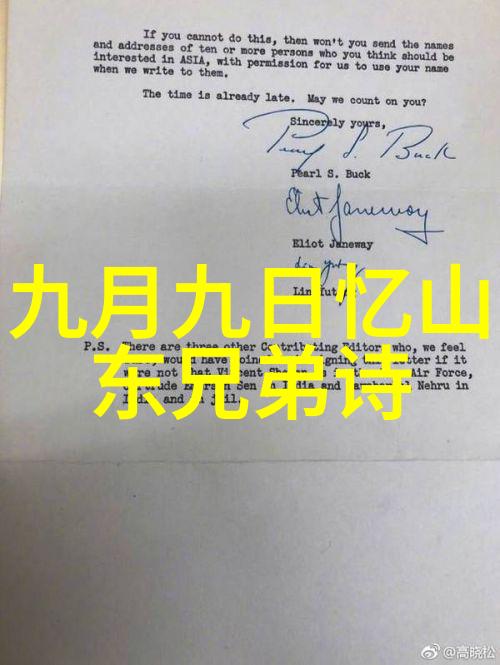 If you cannot do this, then won't you send the names
and addresses of ten or more persons who you think should be
interested in ASIA, with permission for us to use your name
when we write to them.
The time is already late. May we count on you?
Sincerely yours,
Pearl S. Buck
Pearl S. Buck
Eliot Janeway
Eliot Janeway
Lin Yutang
九月九日忆山
东兄弟诗
P.S. There are three other Contributing Editor who, we feel
would have signing letter if it
were not that Vincent Air Force,
Sen India and Nehru in
and in jail.
@高晓松